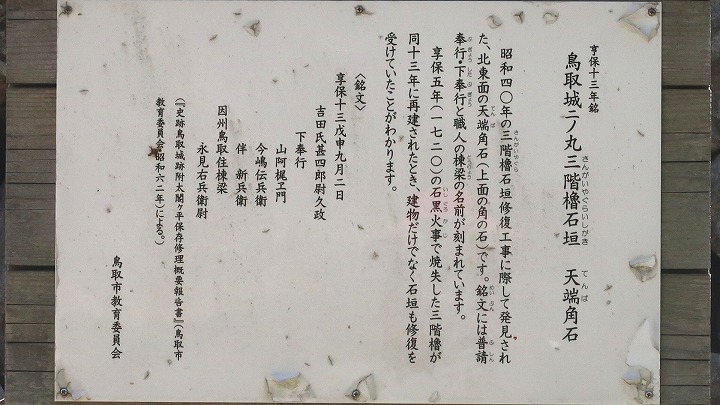 享保十三年銘
鳥取城二ノ丸三階櫓石垣　天端角石
さんがいやぐらいしがき　てんば
昭和四〇年の三階櫓石垣修復工事に際して発見され
さんがいやぐら
た、北東面の天端角石（上面の角の石）です。銘文には普請
てんば　めいぶん　ふしん
奉行・下奉行と職人の棟梁の名前が刻まれています。
ぶぎょう　したぶぎょう　とうりょう
享保五年（一七二〇）の石黒火事で焼失した三階櫓が
いしぐろかじ
同十三年に再建されたとき、建物だけでなく石垣も修復を
受けていたことがわかります。
〈銘文〉
享保十三戊申九月二日
吉田氏甚四郎尉久政
下奉行
山阿梶ヱ門
今嶋伝兵衛
伴　新兵衛
因州鳥取住棟梁
永見右兵衛尉
（『史跡鳥取城跡附太閤ヶ平保存修理概要報告書』（鳥取市
教育委員会・昭和六二年）による。）
鳥取市教育委員会